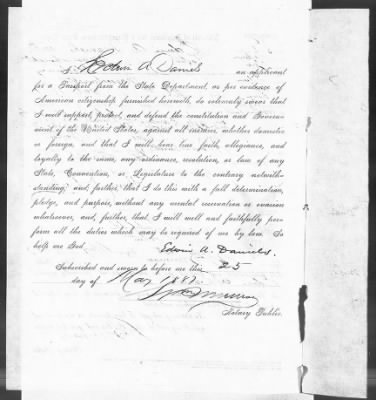 I Edwin A. Daniels an applicant
for a Passport from the State Department, as per evidence of
American citizenship furnished herewith, do solemnly swear that
I will support, protect, and defend the constitution and Govern-
ment of the United States, against all enemies, whether domestic
or foreign, and that I will bear true faith, allegiance, and
loyalty to the same, any ordinance, resolution, or law of any
State, Convention, or Legislature to the contrary notwith-
standing; and, further, that I do this with a full determination,
pledge, and purpose, without any mental reservation or evasion
whatsoever, and, further, that I will well and faithfully per-
form all the duties which may be required of me by law. So
help me God.
Edwin A. Daniels.
Subscribed and sworn to before me this 25
day of May 188
Notary Public.